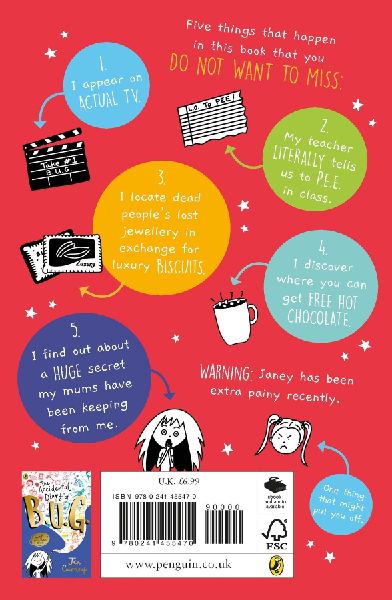 Five things that happen
in this book that you
DO NOT WANT TO MISS:
1.
I appear on
ACTUAL TV.
Take #1
B.U.G
L.O. To P.E.E!
2.
My teacher
LITERALLY tells
us to P.E.E.
in class.
3.
I locate dead
people's lost
jewellery in
exchange for
luxury BISCUITS.
Luxury
4.
I discover
where you can
get FREE HOT
CHOCOLATE.
5.
I find out about
a HUGE secret
my mums have
been keeping
from me.
WARNING: Janey has been
extra painy recently.
One thing
that might
put you off.
The Accidental
Diary of
B.U.G.
Jen
Carney
U.K. £6.99
ISBN 978-0-241-45547-0
90000
9 780241 455470
www.penguin.co.uk
ebook
available
FSC